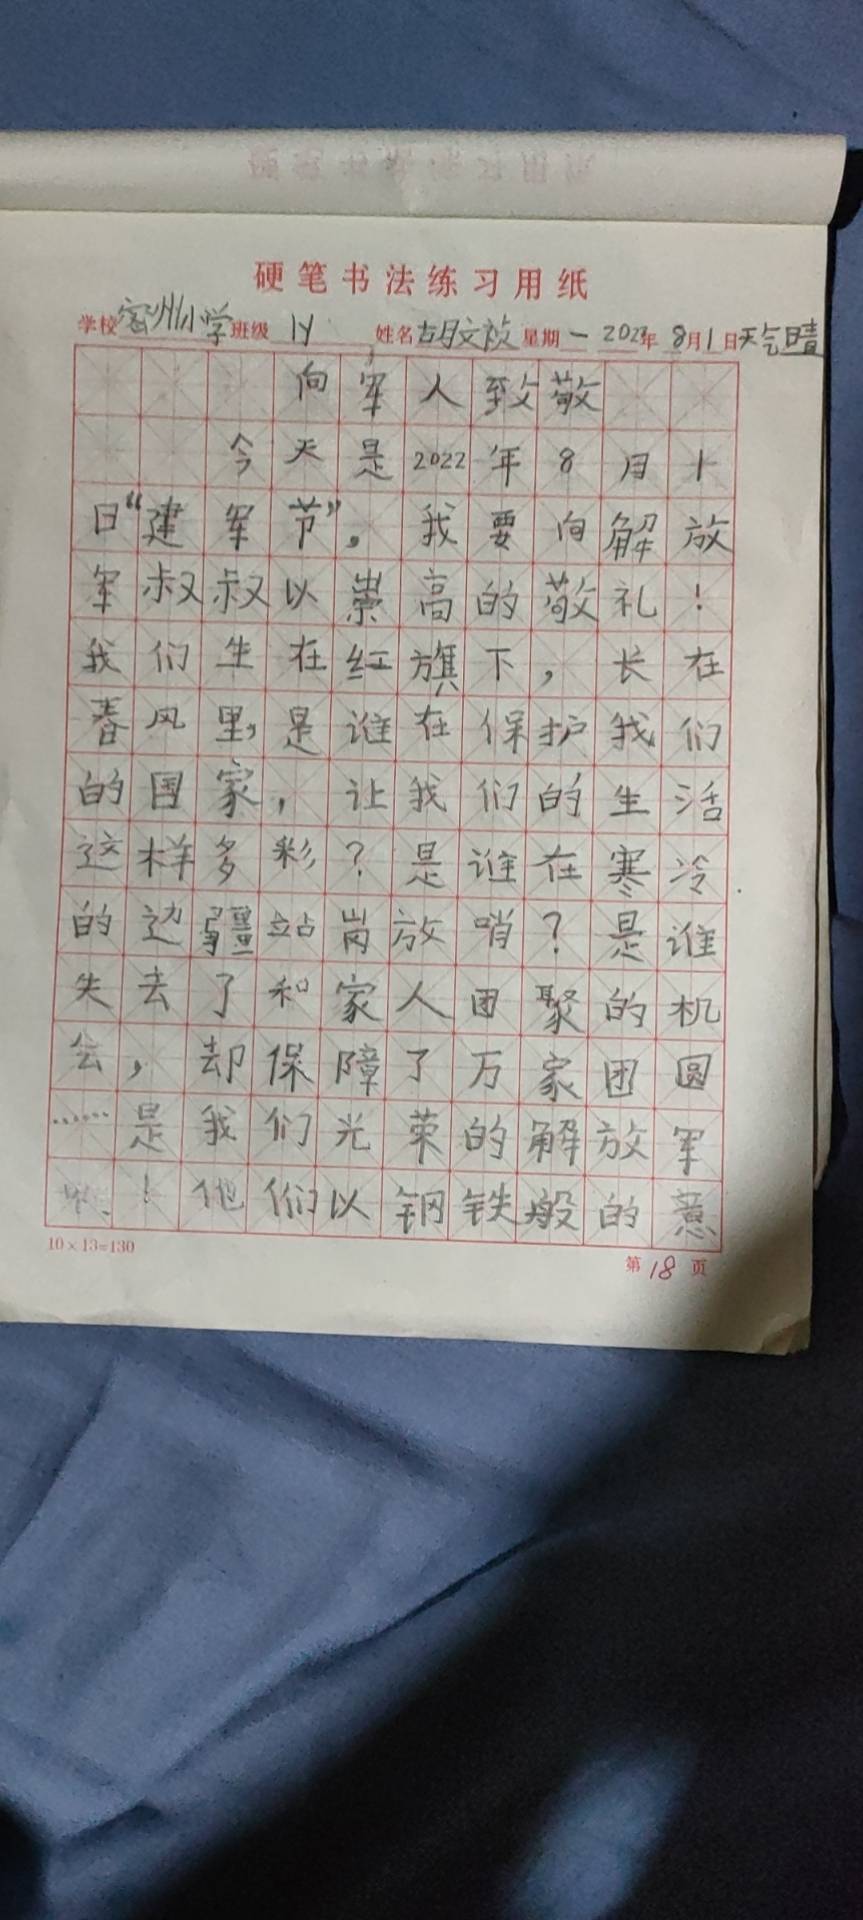 硬笔书法练习用纸
学校密州小学班级 14 姓名胡文祯星期一 2022年8月1日天气晴
向军人致敬
今天是2022年8月1
日“建军节”。我要向解放
军叔叔以崇高的敬礼！
我们生在红旗下，长在
春风里，是谁在保护我们
的国家，让我们的生活
这样多彩？是谁在寒冷
的边疆站岗放哨？是谁
失去了和家人团聚的机
会，却保障了万家团圆
……是我们光荣的解放军
！他们以钢铁般的意
10×13=130
第18页